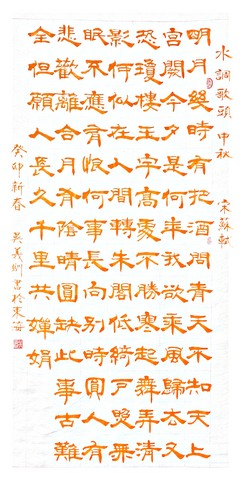 水調歌頭 中秋 宋蘇軾
明月幾時有把酒問青天不知天上
宮闕今夕是何年我欲乘風歸去又
恐瓊樓玉宇高處不勝寒起舞弄清
影何似在人間轉朱閣低綺戶照無
眠不應有恨何事長向別時圓人有
悲歡離合月有陰晴圓缺此事古難
全但願人長久千里共嬋娟
癸卯新春 吳義書於東